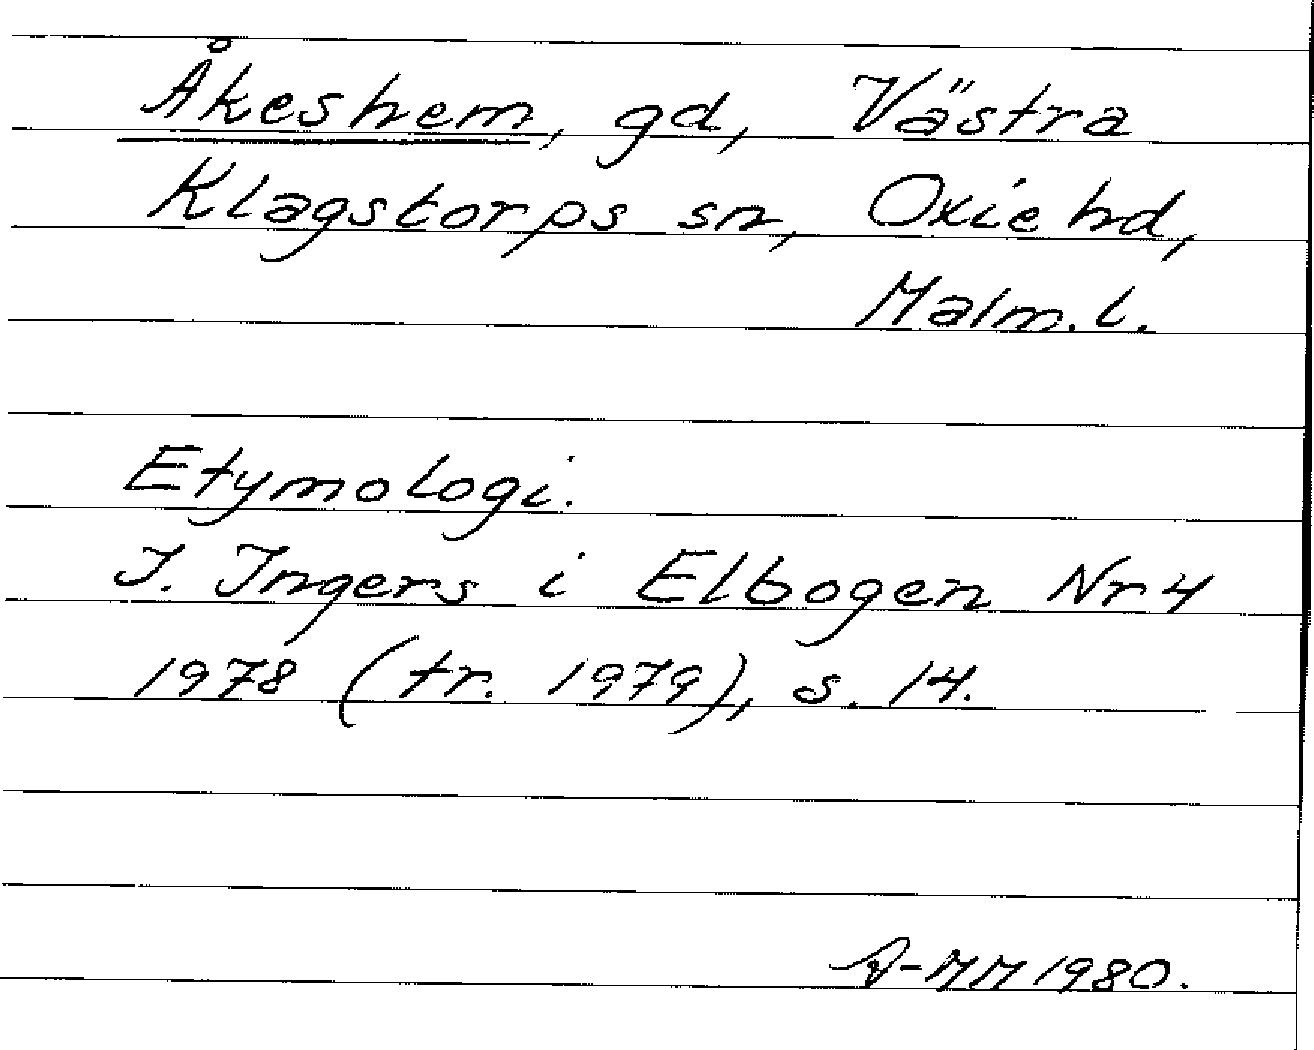 Åkeshem, gd, Västra
Klagstorps sn, Oxie hd,
Malm. l.
Etymologi.
I. Ingers i Elbogen Nr 4
1978 (tr. 1979), s. 14.
A-MM 1980.